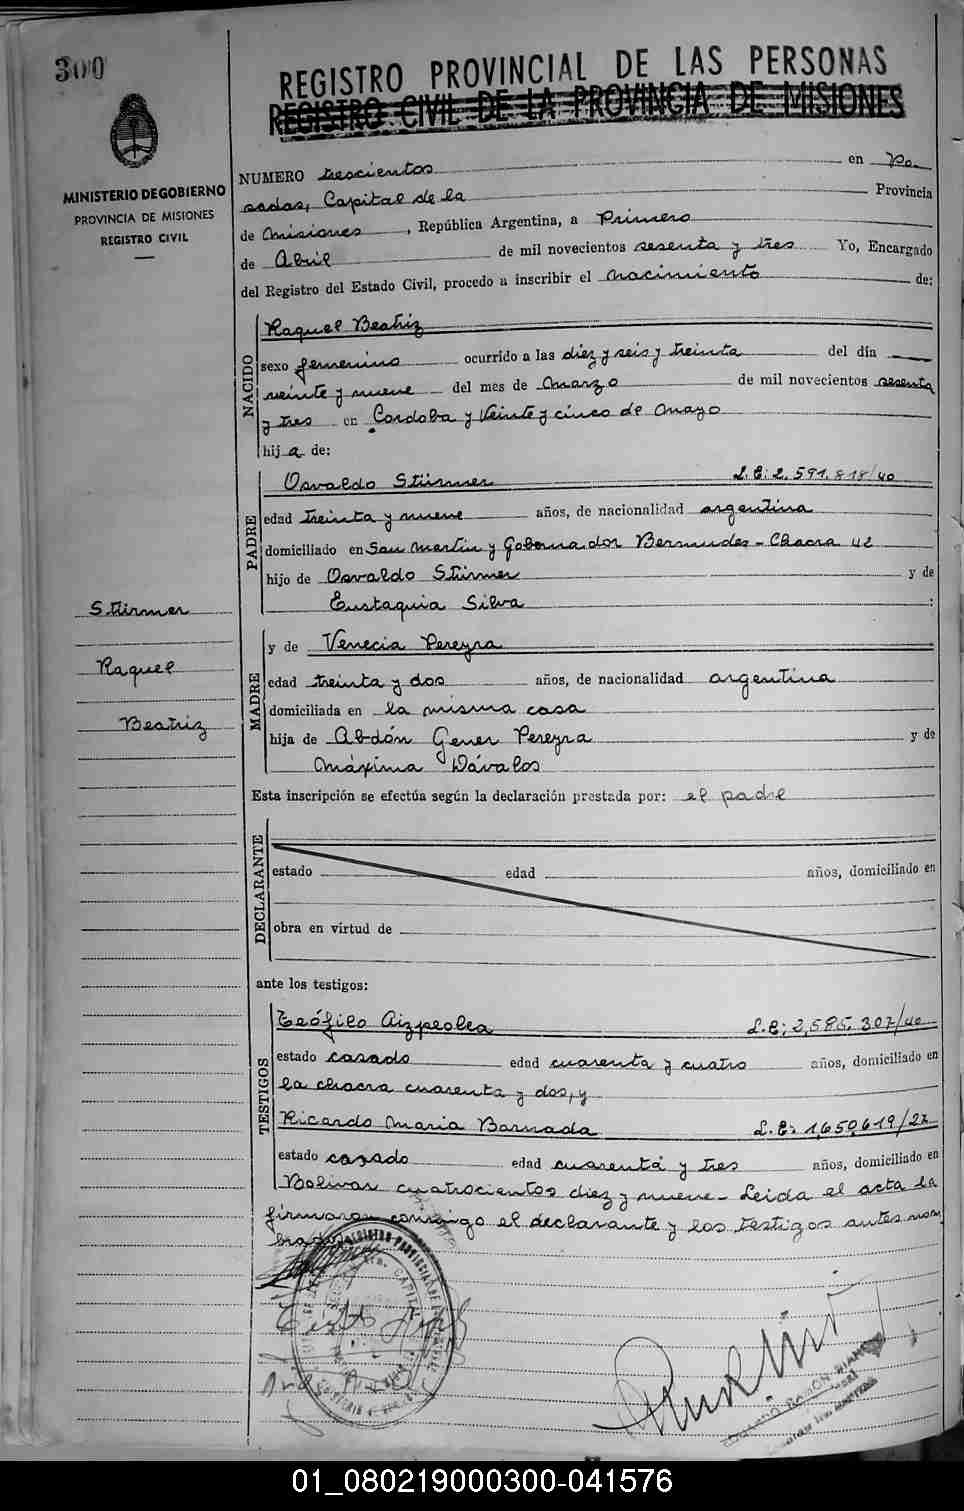 300
REGISTRO PROVINCIAL DE LAS PERSONAS
REGISTRO CIVIL DE LA PROVINCIA DE MISIONES
MINISTERIO DE GOBIERNO
PROVINCIA DE MISIONES
REGISTRO CIVIL
NUMERO trescientos en Po-
sadas, Capital de la Provincia
de Misiones, República Argentina, a Primero
de Abril de mil novecientos sesenta y tres Yo, Encargado
del Registro del Estado Civil, procedo a inscribir el nacimiento de:
NACIDO
Raquel Beatriz
sexo femenino ocurrido a las diez y seis y treinta del día
veinte y nueve del mes de Marzo de mil novecientos sesenta
y tres en Cordoba y Veinte y cinco de Mayo
hija de:
PADRE
Osvaldo Stürmer L.E: 2.591.818/40
edad treinta y nueve años, de nacionalidad argentina
domiciliado en San Martin y Gobernador Bermudes - Chacra 42
hijo de Osvaldo Stürmer y de
Eustaquia Silva :
Stürmer
Raquel
Beatriz
MADRE
y de Venecia Pereyra
edad treinta y dos años, de nacionalidad argentina
domiciliada en la misma casa
hija de Abdón Gener Pereyra y de
Máxima Dávalos
Esta inscripción se efectúa según la declaración prestada por: el padre
DECLARANTE
estado edad años, domiciliado en
obra en virtud de
ante los testigos:
TESTIGOS
Teófilo Aizpeolea L.E; 2,585.307/40
estado casado edad cuarenta y cuatro años, domiciliado en
la chacra cuarenta y dos, y
Ricardo Maria Barnada L.E: 1,650,619/27
estado casado edad cuarenta y tres años, domiciliado en
Bolivar cuatrocientos diez y nueve - Leida el acta la
firmaron conmigo el declarante y los testigos antes nom
brados
01_080219000300-041576